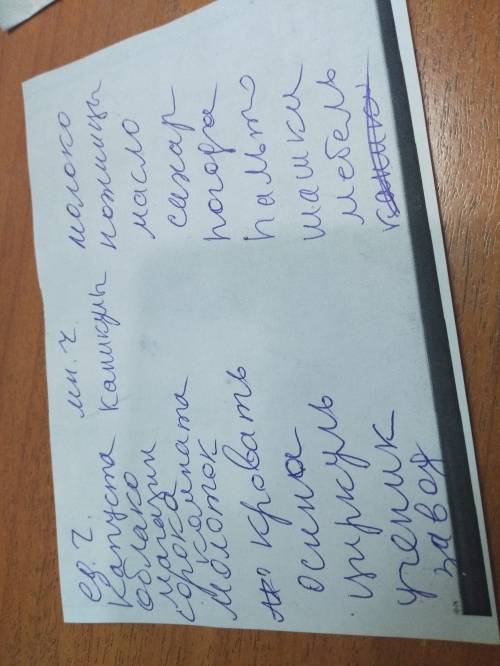 ед. ч. мн. ч. молоко
Капуста Каникулы ножницы
Облако масло
магазин
сорока сахар
комната погода
молоток пальто
кровать шашки
осина мебель
циркуль
ученик
завод